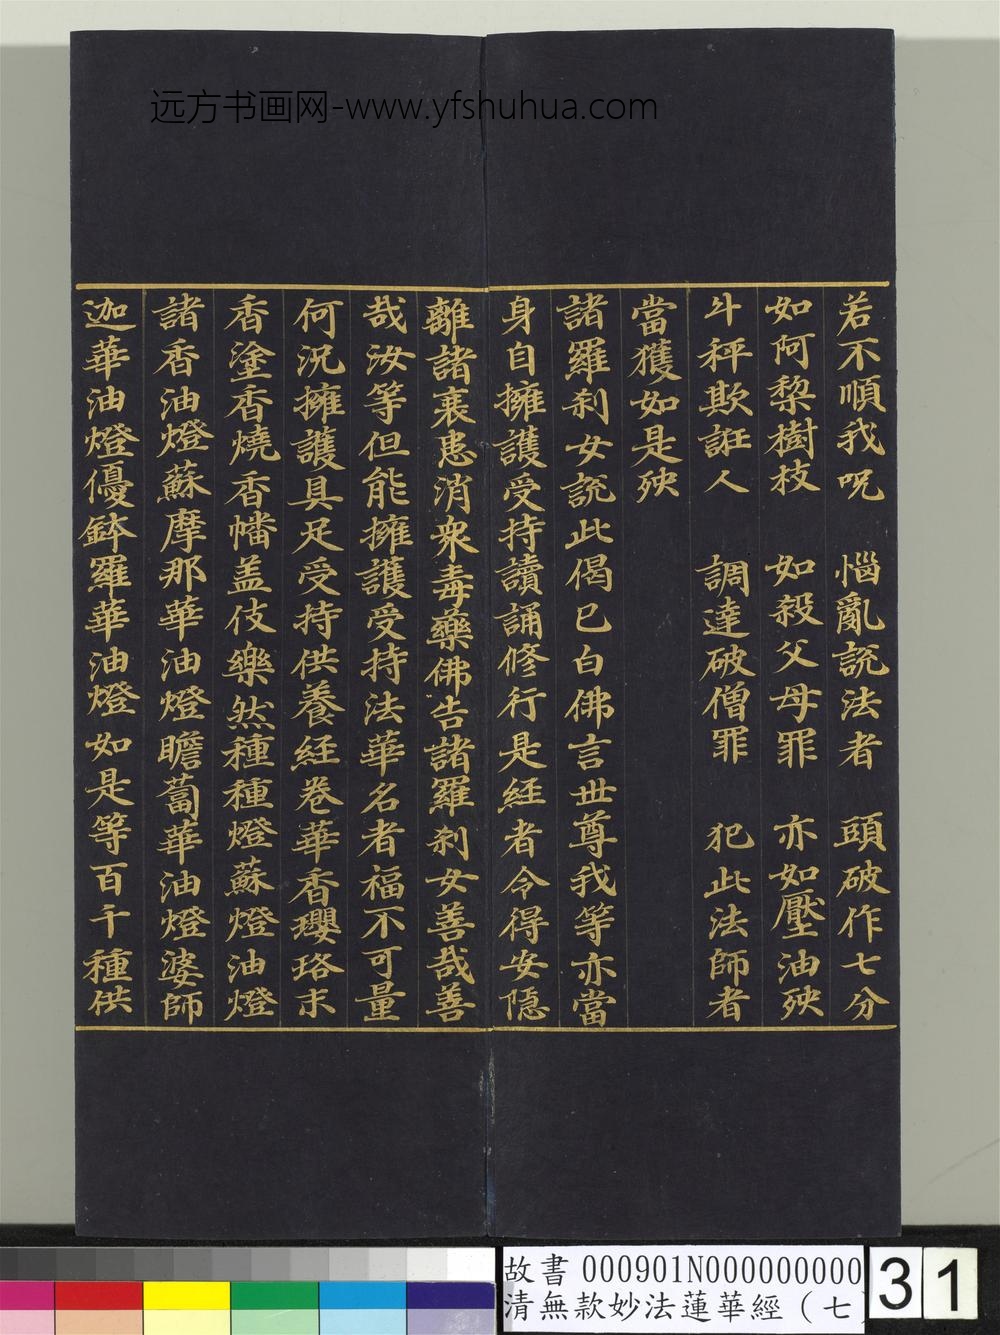 远方书画网-www.yfshuhua.com
若不順我呪　惱亂說法者　頭破作七分
如阿棃樹枝　如殺父母罪　亦如壓油殃
斗秤欺誑人　調達破僧罪　犯此法師者
當獲如是殃
諸羅刹女說此偈已白佛言世尊我等亦當
身自擁護受持讀誦修行是經者令得安隱
離諸衰患消衆毒藥佛告諸羅刹女善哉善
哉汝等但能擁護受持法華名者福不可量
何況擁護具足受持供養經卷華香瓔珞末
香塗香燒香幡盖伎樂然種種燈蘇燈油燈
諸香油燈蘇摩那華油燈瞻蔔華油燈婆師
迦華油燈優鉢羅華油燈如是等百千種供
故書 000901N000000000
清無款妙法蓮華經（七
31